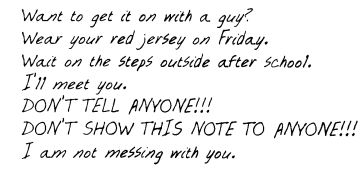 Want to get it on with a guy?
Wear your red jersey on Friday.
Wait on the steps outside after school.
I'll meet you.
DON'T TELL ANYONE!!!
DON'T SHOW THIS NOTE TO ANYONE!!!
I am not messing with you.